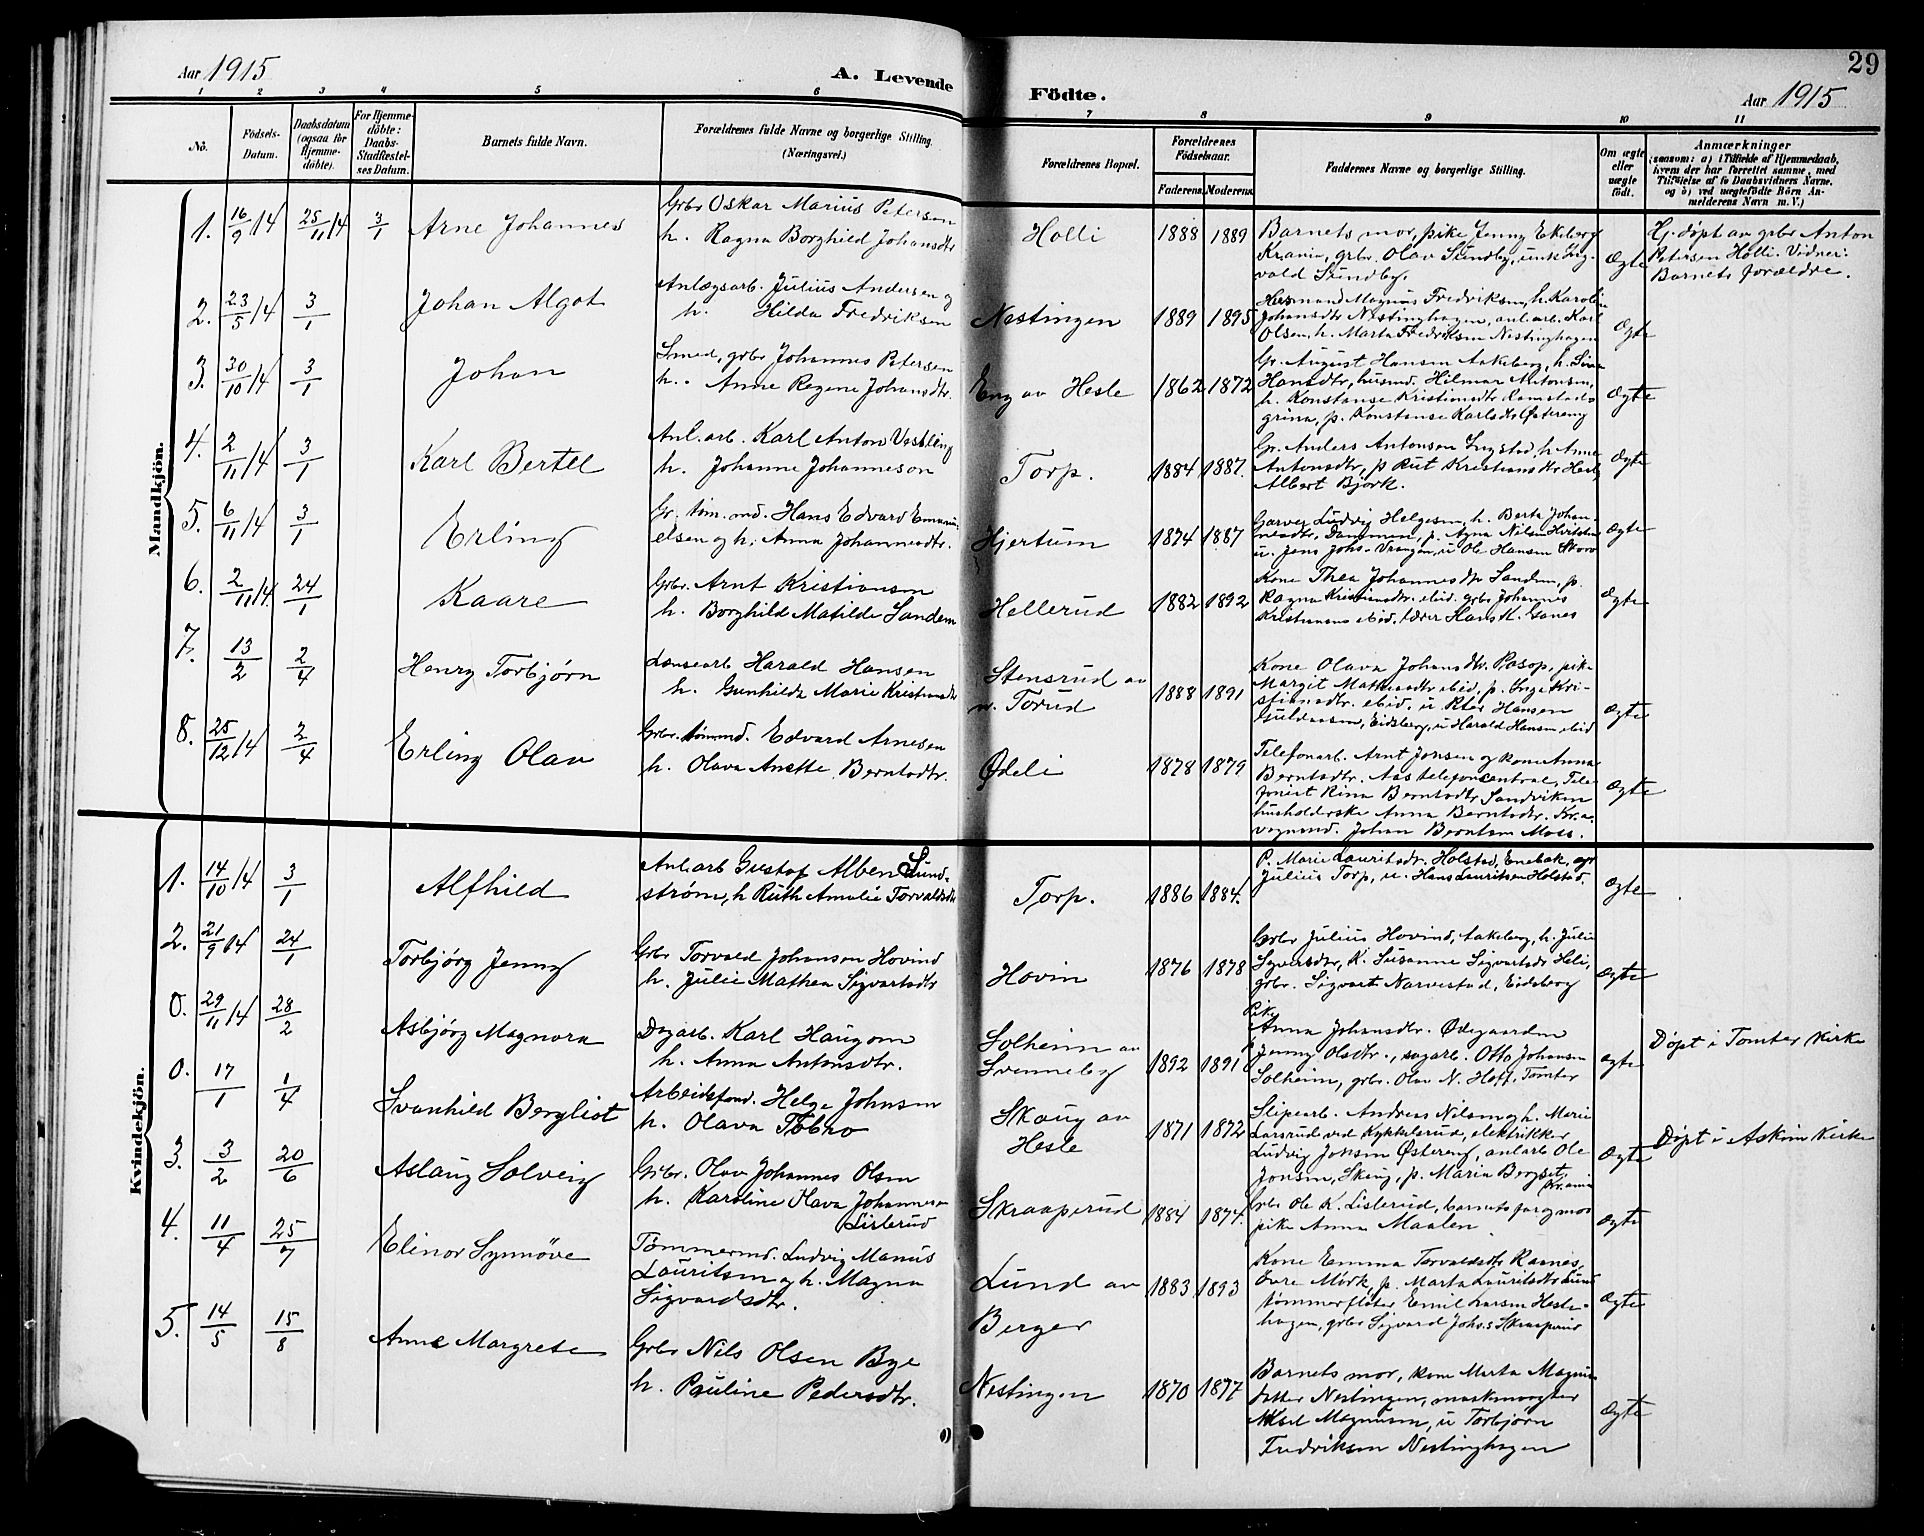 Aar 1915
A. Levende
Födte.
Aar 1915
29
1 2 3 4 5 6 7 8 9 10 11
No.
Födsels-
Datum.
Daabsdatum
(ogsaa for
Hjemme-
döbte).
For Hjemme-
döbte:
Daabs-
Stadfæstel-
ses Datum.
Barnets fulde Navn.
Forældrenes fulde Navne og borgerlige Stilling.
(Næringsvei.)
Forældrenes Bopæl.
Forældrenes
Födselsaar.
Faderens. Moderens.
Faddernes Navne og borgerlige Stilling.
Om ægte
eller
uægte
födt.
Anmærkninger
(saasom: a) i Tilfælde af Hjemmedaab,
hvem der har forrettet samme, med
Tilföielse af to Daabsvidners Navne,
og b) ved uægtefödte Börn An-
melderens Navn m. V.)
Mandkjön.
1. 16/9 14 25/11 14 3/1 Arne Johannes
Grbr Oskar Marius Petersen
h. Ragna Borghild Johansdtr
Holli 1888 1889
Barnets mor, pike Jenny Ekeberg
Krania, grbr. Olav Sundby, unk Ing-
vald Sundby.
Ægte
Hj. døpt av grbr Anton
Petersen Holli. Vidner:
Barnets forældre.
2. 23/5 14 3/1 Johan Algot
Anlægsarb. Julius Andersen og
h. Hilda Fredriksen
Nestingen 1889 1895
Husmand Magnus Fredriksen, h. Karoline
Johansdtr Nestinghagen, anl.arb. Karl
Olsen, h. Marta Fredriksen Nestinghagen
Ægte
3. 30/10 14 3/1 Johan
Smed, grbr Johannes Petersen
h. Anne Regene Johansdtr.
Eng av Hesle 1862 1872
Gr. August Hansen Aakeberg, h.
Hansdtr, husmd. Hilmar Antonsen,
h. Konstanse Kristiansdtr Ramstads
grina, p. Konstanse Karlsdtr Østereng
Ægte
4. 2/11 14 3/1 Karl Bertel
Anl. arb. Karl Anton Vestling
h. Johanne Johanneson
Torp. 1884 1887.
Gr. Anders Antonsen Ingstad, h. Anne
Antonsdtr, p Rut Kristiansdtr Hesle,
Albert Bjørk.
Ægte
5. 6/11 14 3/1 Erling
Gr. tøm. md. Hans Edvard Emanu-
elsen og h. Anna Johannesdtr.
Hjertum 1874 1887
Garver Ludvig Helgesen, h. Berte Johan-
nesdtr, Dammen, p. Agna Nilsen
u. Jens Johs. Vrangen, u Ole Hansen Skovo
Ægte
6. 2/11 14. 24/1 Kaare
Grbr. Arnt Kristiansen
h. Borghild Matilde Sandem
Hellerud 1882 1892
Kone Thea Johannesdtr Sandem, p.
Ragna Kristiansdtr. ibid. grbr Johannes
Kristiansen ibid. lærer Hans K. Ganes
Ægte
7. 13/2 2/4 Henry Torbjørn
Lænsearb Harald Hansen
h. Gunhilda Marie Kristiansdtr
Stensrud av
n. Torud 1888 1891
Kone Olava Johansdtr. Pasop, pike
Margit Mathisdtr ibid, p. Inga Kri-
stiansdtr. ibid. u Peter Hansen
Guldaasen, Eidsberg, u Harald Hansen ibid
Ægte
8. 25/12 14 2/4 Erling Olav
Grbr. tømmd. Edvard Arnesen
h. Olava Anette Berntsdtr.
Ødeli 1878 1879
Telefonarb. Arnt Jonsen og kone Anna
Berntsdtr. Aas telefoncentral, Tele-
fonist Rina Berntsdtr Sandviken
husholderske Anna Berntsdtr. Kr.a.
vognmd. Johan Berntsen Moss.
Ægte
Kvindekjön.
1. 14/10 14 3/1 Alfhild
Anl.arb Gustaf Alben Lund-
strøm, h Ruth Amalie Torvaldsdtr
Torp. 1886 1884.
P. Marie Lauritsdtr. Holstad, Enebak, grbr
Julius Torp, u. Hans Lauritsen Holstad.
Ægte
2. 21/9 14 24/1 Torbjørg Jenny
Grbr Torvald Johansen Hovind
h. Julie Mathea Sigvartsdtr
Hovin 1876 1878
Grbr Julius Hovind, Aakeberg, h. Julie
Syversdtr, K. Susanne Sigvartsdtr Heli,
grbr. Sigvart Narvestad, Eidsberg
Ægte
0. 29/11 14 28/2 Asbjørg Magnora
Dagarb. Karl Haugom
h. Anna Antonsdtr.
Solheim av
Svenneby 1892 1891
Pike
Anna Johansdtr. Ødegaarden
p Jenny Olsdtr., sagarb. Otto Johansen
Solheim, grbr. Olav N. Hoff, Tomter
Ægte
Døpt i Tomter Kirke
0. 17/1 1/4 Svanhild Bergliot
Arbeidsfomd. Helge Johnsen
h. Olava Tobro
Skoug av
Hesle 1871 1872
Slipearb. Andreas Nilsen og h. Marie
Larsrud ved Kykkelsrud, elektriker
Ludvig Jonsen Østereng, anl.arb Ole
Jonsen, Skoug, p. Maria Bergset,
Kr.ania
Ægte
Døpt i Askim Kirke
3. 3/2 20/6 Aslaug Solveig
Grbr. Olav Johannes Olsen
h. Karoline Hava Johannesen
Lislerud
Skraaperud 1884 1874.
Grbr Ole K. Lislerud, barnets far og mor
pike Anna Maalen
Ægte
4. 11/4 25/7 Elinor Synnøve
Tømmermd. Ludvig Manus
Lauritsen og h. Magna
Sigvardsdtr.
Lund av
Berger 1883 1893
Kone Emma Torvaldsdtr Ramnes,
Øvre Mørk, p. Marta Lauritsdtr Lund
tømmerfløter Emil Larsen Hesle-
hagen, grbr Sigvard Johs. Skraaperud
Ægte
5. 14/5 15/8 Anne Margrete
Grbr Nils Olsen Bye
h. Pauline Pedersdtr.
Nestingen 1870 1877
Barnets mor, kone Marta Magnus-
datter Nestingen, maskinvogter
Aksel Magnusen, u Torbjørn
Fredriksen Nestinghagen
Ægte